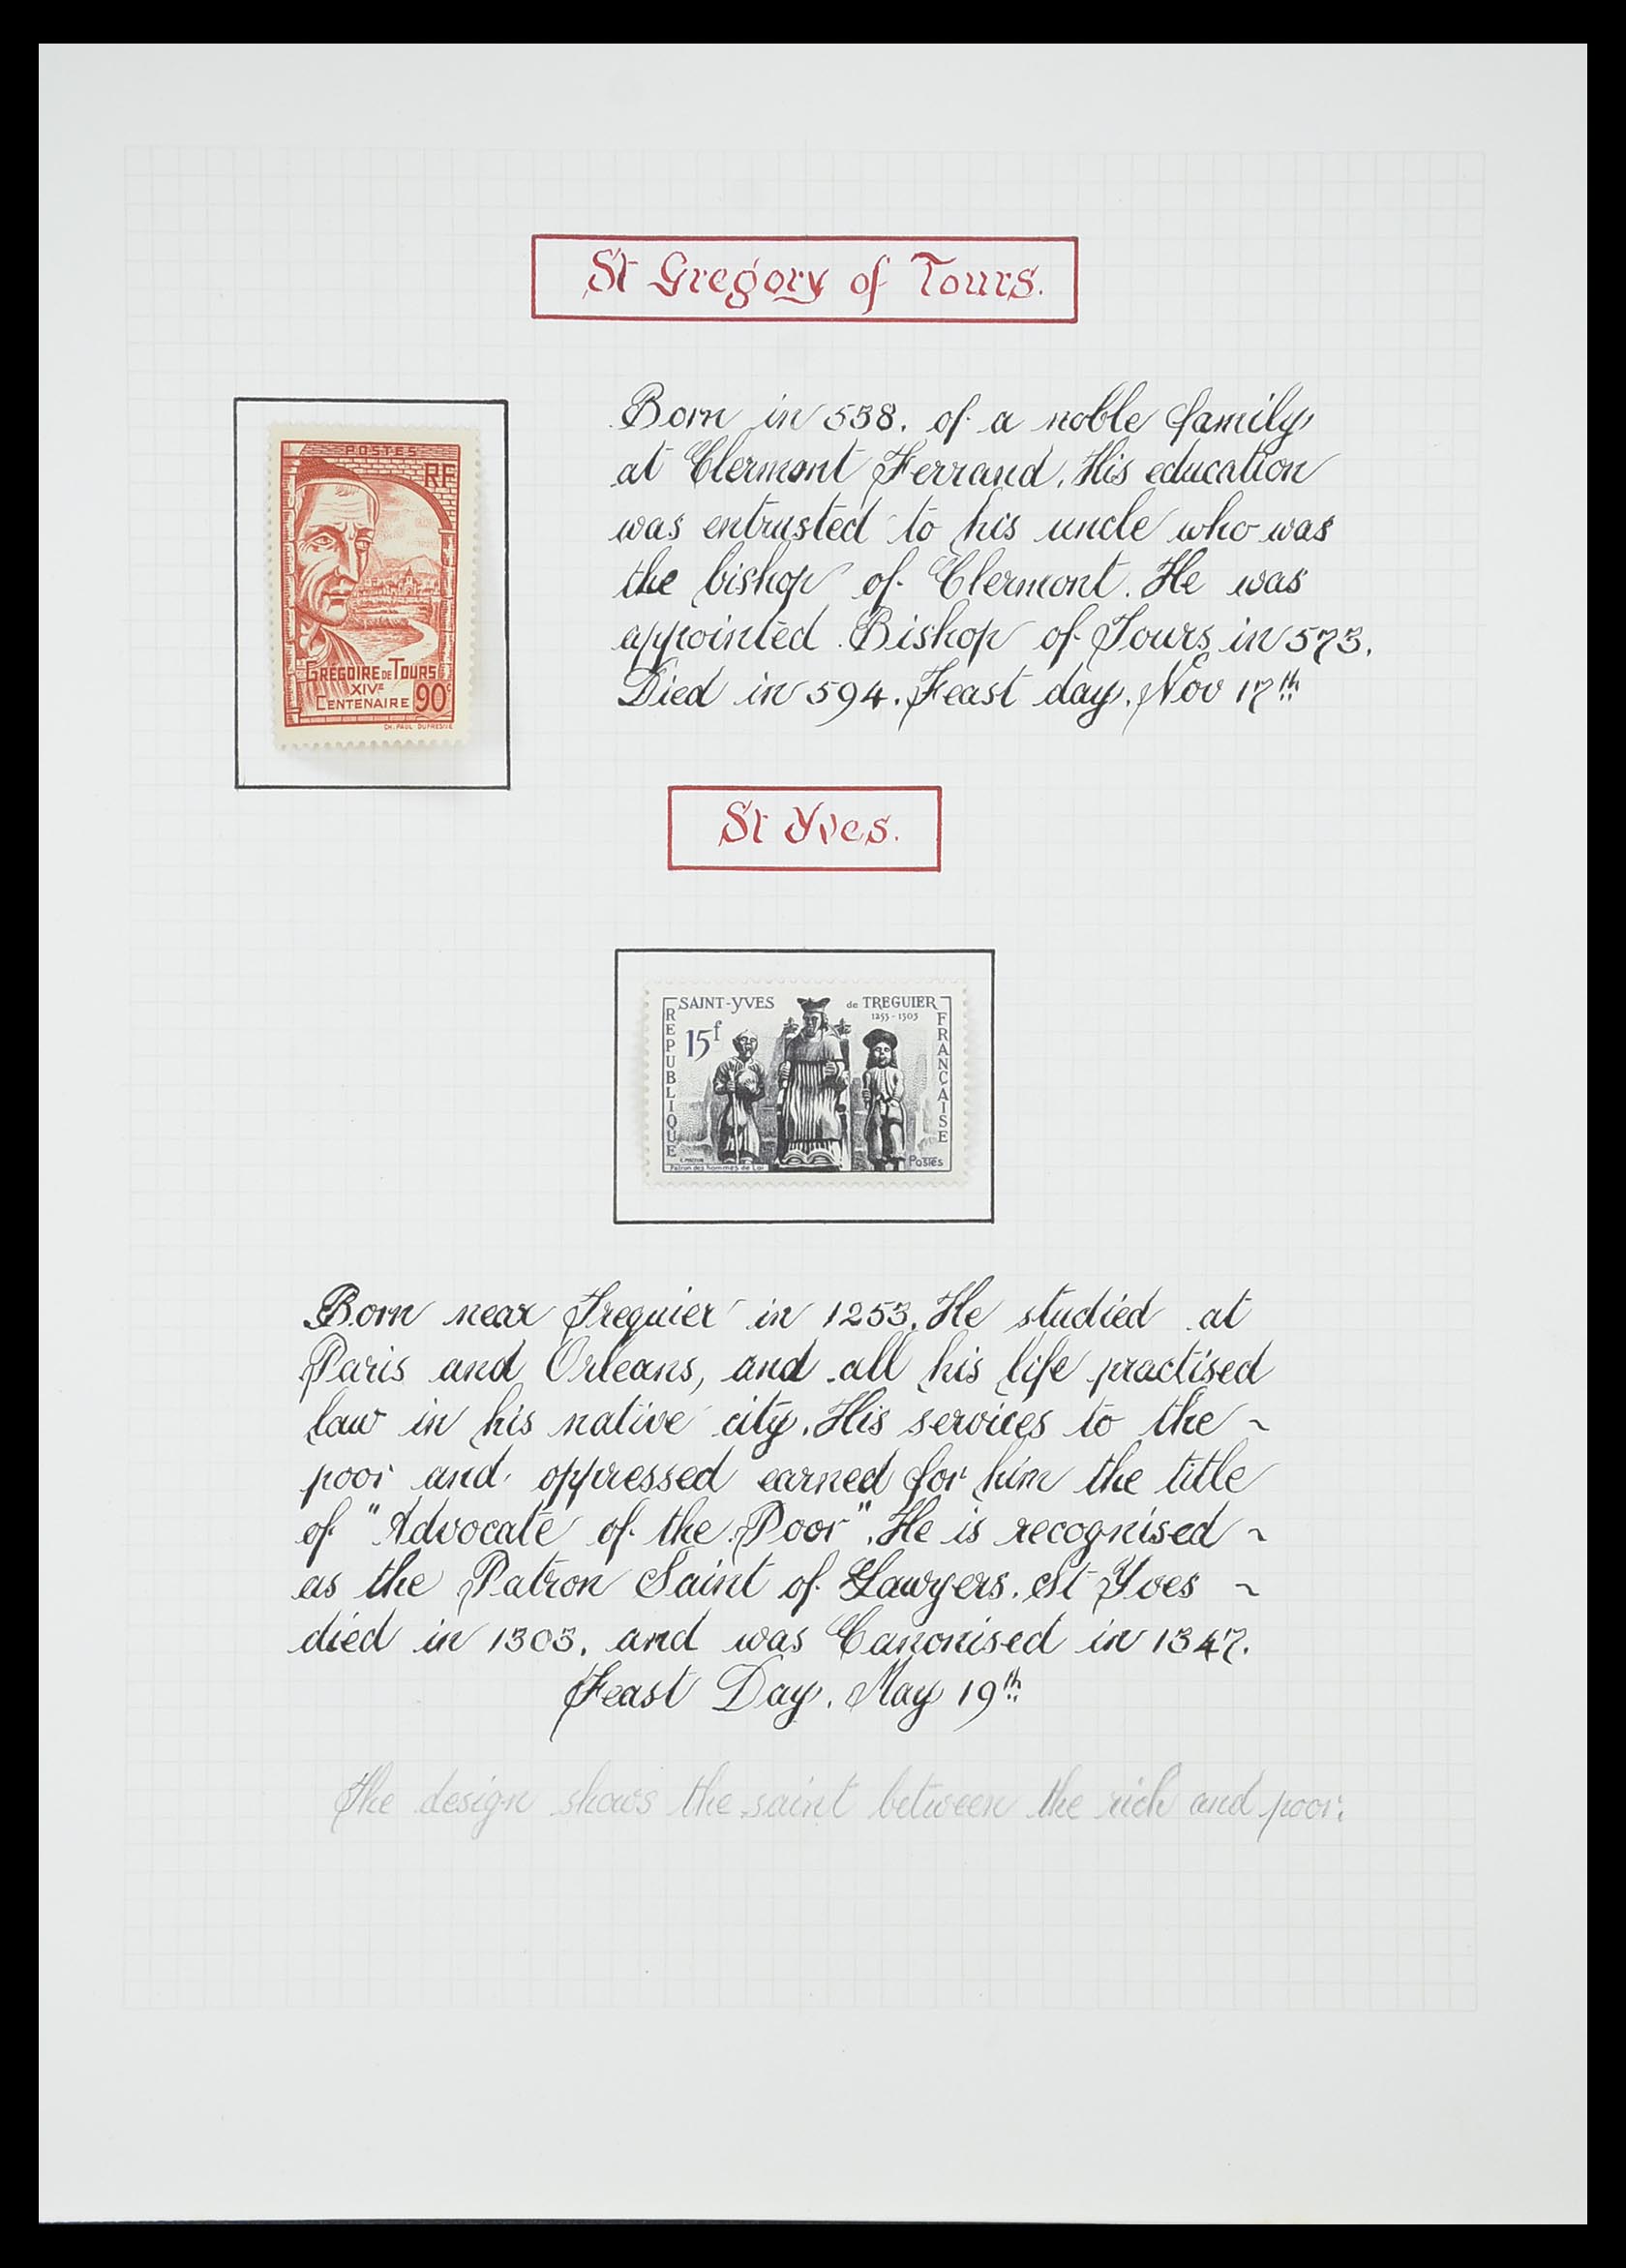 St Gregory of Tours.
POSTES
RF
GRÉGOIRE DE TOURS
XIVE
CENTENAIRE 90c
CH. PAUL DUFRESNE
Born in 538. of a noble family
at Clermont Ferrand. His education
was entrusted to his uncle who was
the bishop of Clermont. He was
appointed Bishop of Tours in 573.
Died in 594. Feast day. Nov 17th
St Yves.
SAINT-YVES de TREGUIER
1253-1303
REPUBLIQUE
15f
FRANCAISE
Postes
Patron des hommes de Loi
Born near Treguier in 1253. He studied at
Paris and Orleans, and all his life practised
law in his native city. His services to the ~
poor and oppressed earned for him the title
of "Advocate of the Poor". He is recognised ~
as the Patron Saint of Lawyers. St Yves ~
died in 1303. and was Canonised in 1347.
Feast Day. May 19th
The design shows the saint between the rich and poor.